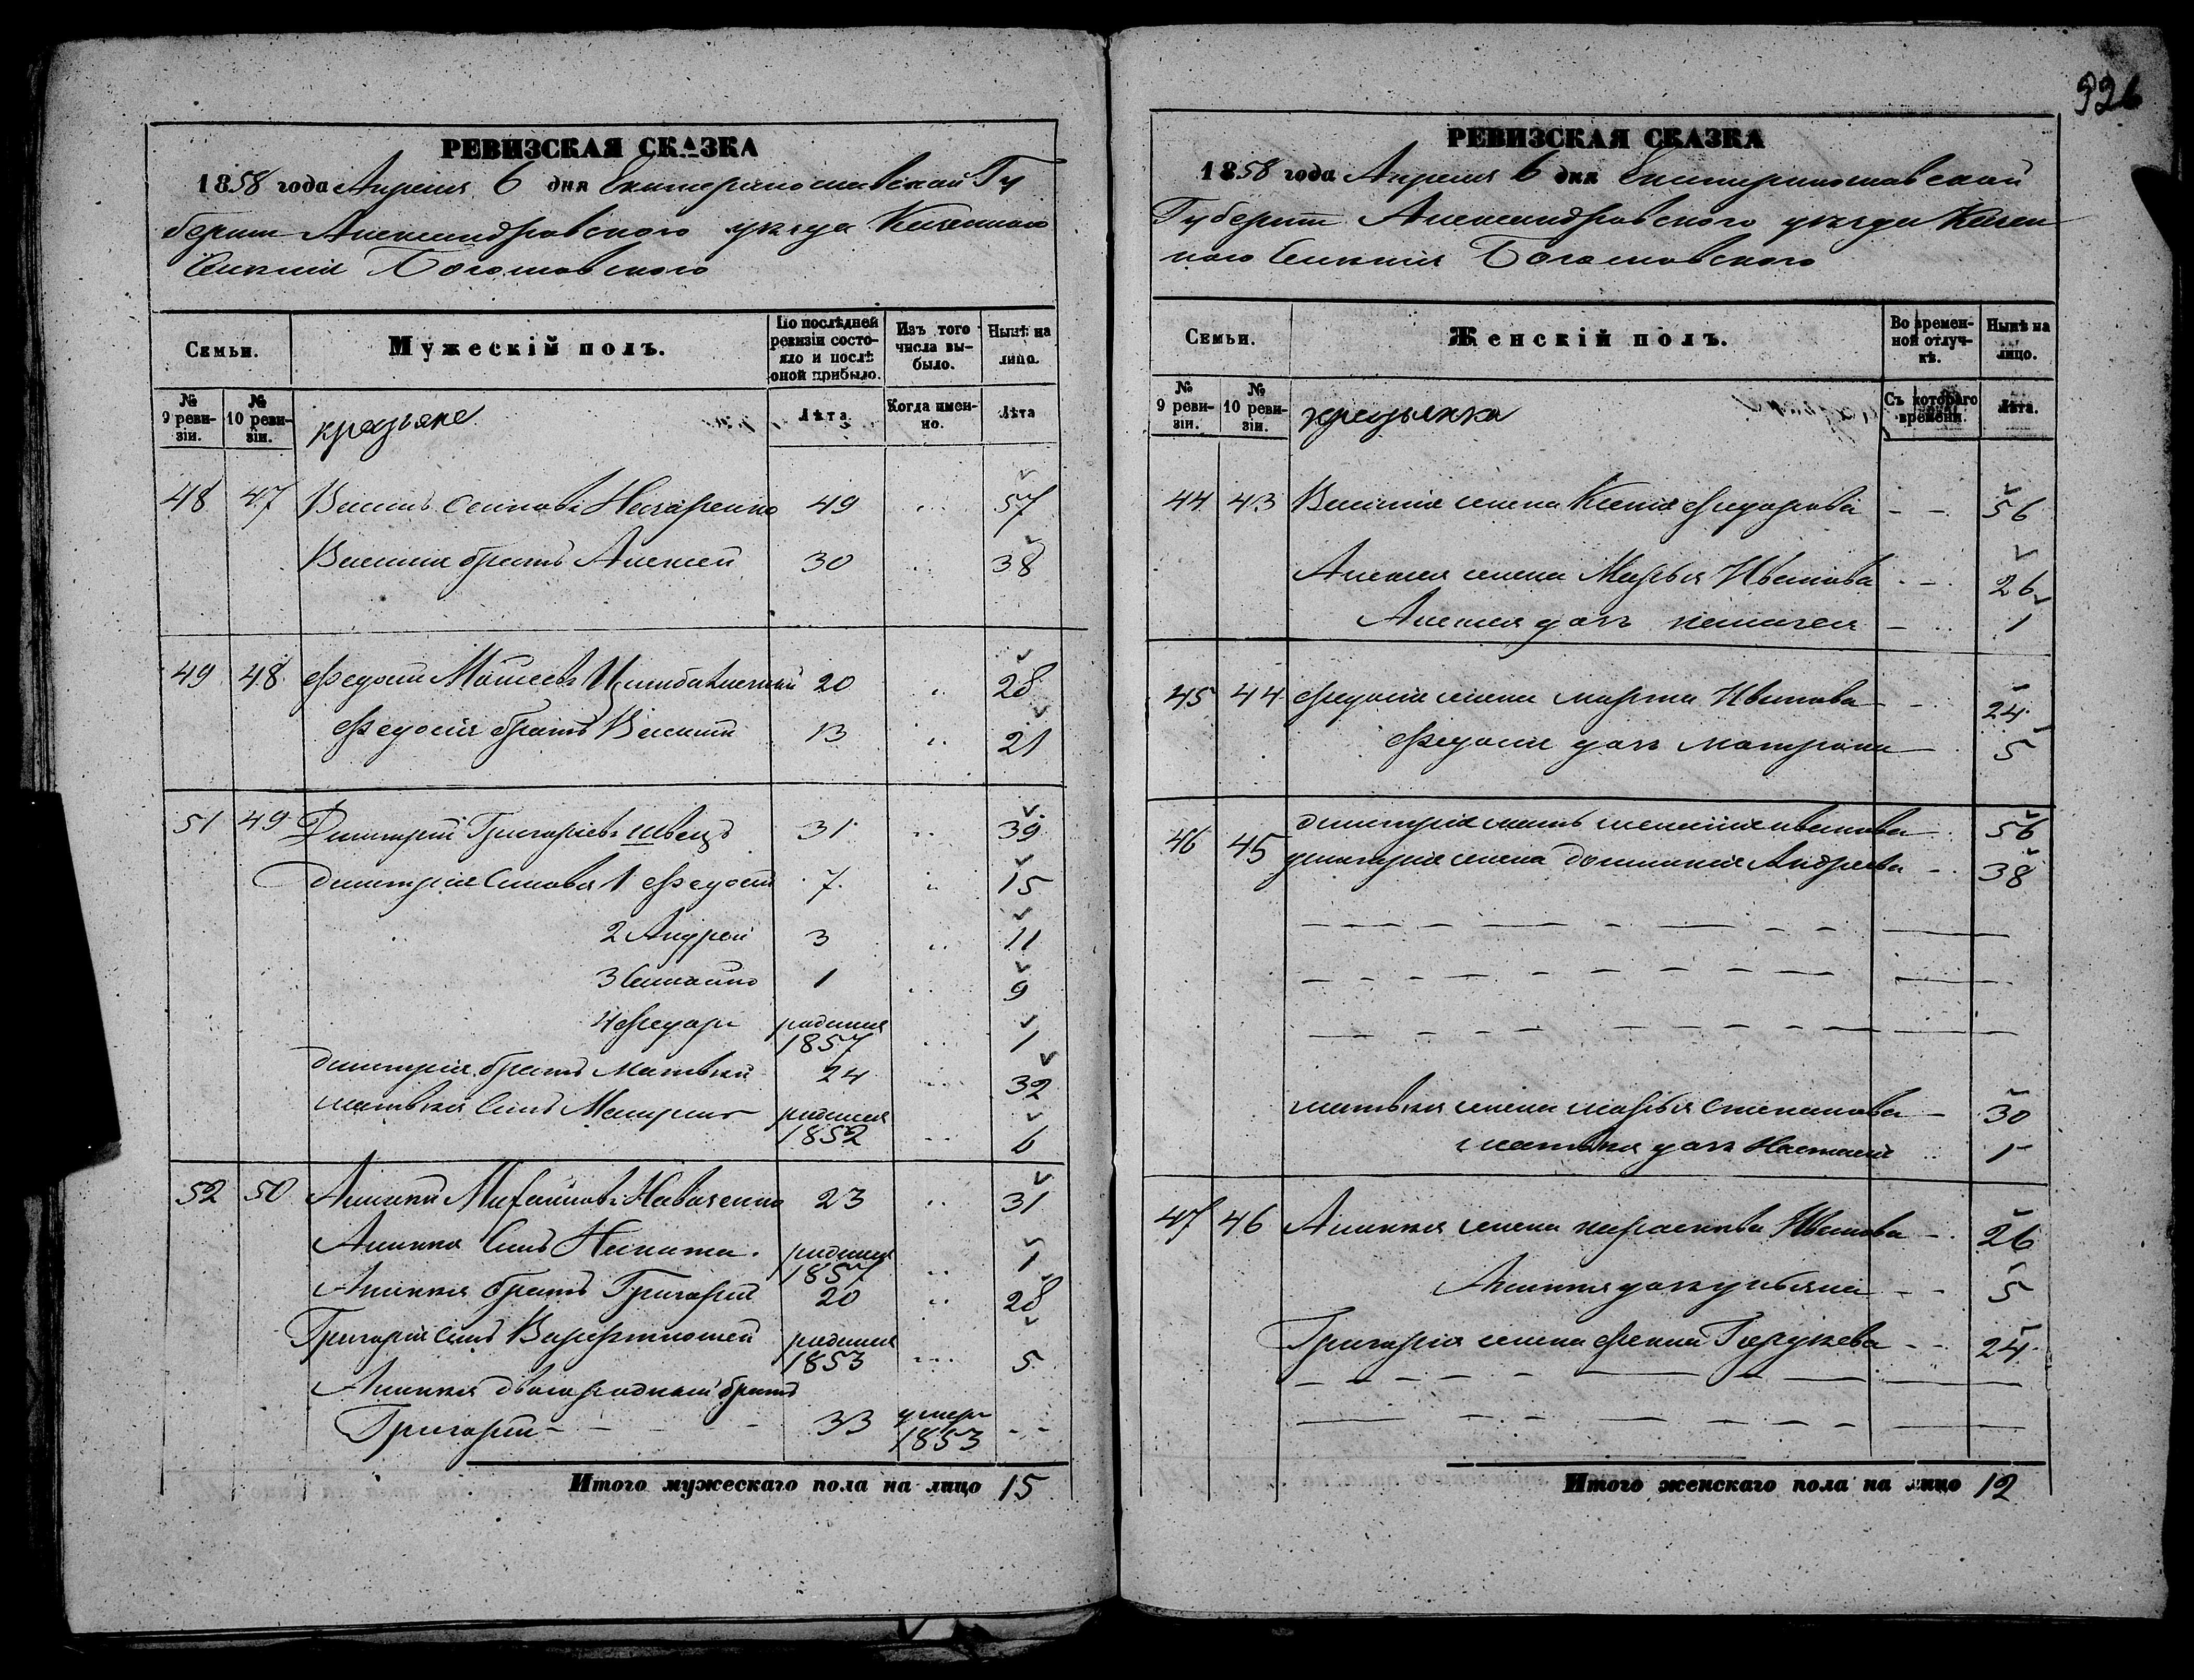 326
РЕВИЗСКАЯ СКАЗКА
1858 года Апреля 6 дня Екатеринославской Гу
бернии Александровского уезда Казенного
Селения Богословского
Семьи.
Мужескій полъ.
По послѣдней ревизіи состояло и послѣ оной прибыло.
Изъ того числа выбыло.
Нынѣ на лицо.
№ 9 ревизіи.
№ 10 ревизіи.
крестьяне
Лѣта
Когда именно.
Лѣта
48 47 Василь Семеновъ Назаренко 49 57
Василия братъ Алексей 30 38
49 48 Федосий Моисеевъ 20 28
Федосия братъ Василий 13 21
51 49 Димитрий Григориевъ Швецъ 31 39
Димитрия Сыновья 1 Федосий 7 15
2 Андрей 3 11
3 Самойло 1 9
4 Федоръ родился 1857 1
Димитрия братъ Матвей 24 32
Матвея Сынъ родился 1852 6
52 50 Михайловъ 23 31
Сынъ Никита родился 1857 1
братъ Григорий 20 28
Григория Сынъ Варфоломей родился 1853 5
двоюродный братъ
Григорий 33 умеръ 1853
Итого мужескаго пола на лицо 15
РЕВИЗСКАЯ СКАЗКА
1858 года Апреля 6 дня Екатеринославской
Губернии Александровского уезда Казен
ного Селения Богословского
Семьи.
Женскій полъ.
Во временной отлучкѣ.
Нынѣ на лицо.
№ 9 ревизіи.
№ 10 ревизіи.
Съ котораго времени.
Лѣта.
44 43 Василия жена Ксения Федорова 56
Алексея жена Марья Иванова 26
Алексея дочь 1
45 44 Федосия жена Марфа Иванова 24
Федосия дочь Матрона 5
46 45 Димитрия мать Иванова 56
Димитрия жена Домникия Андреева 38
Матвея жена Марья Степанова 30
Матвея дочь 1
47 46 жена Парасковья Иванова 26
дочь Ульяна 5
Григория жена 24
Итого женскаго пола на лицо 12